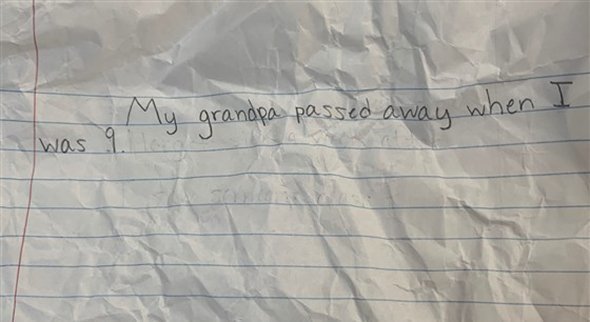 My grandpa passed away when I
was 9.